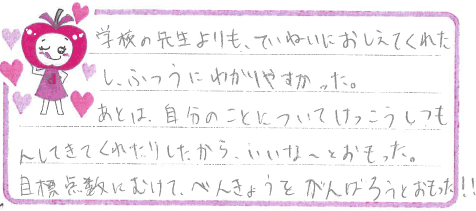 学校の先生よりも、ていねいにおしえてくれた
し、ふつうにわかりやすかった。
あとは、自分のことについてけっこうしつも
んしてきてくれたりしたから、いいな～とおもった。
目標点数にむけて、べんきょうをがんばろうとおもった!!